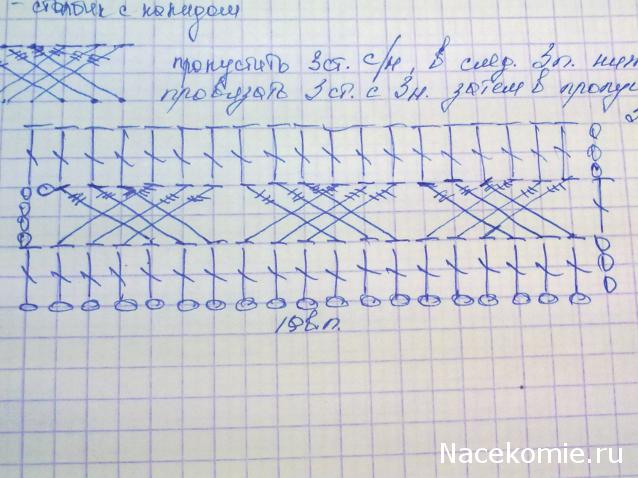 - столбик с накидом
пропустить 3 ст. с/н, в след. 3 п.
провязать 3 ст. с 3 н. затем в
в.п.
Nacekomie.ru